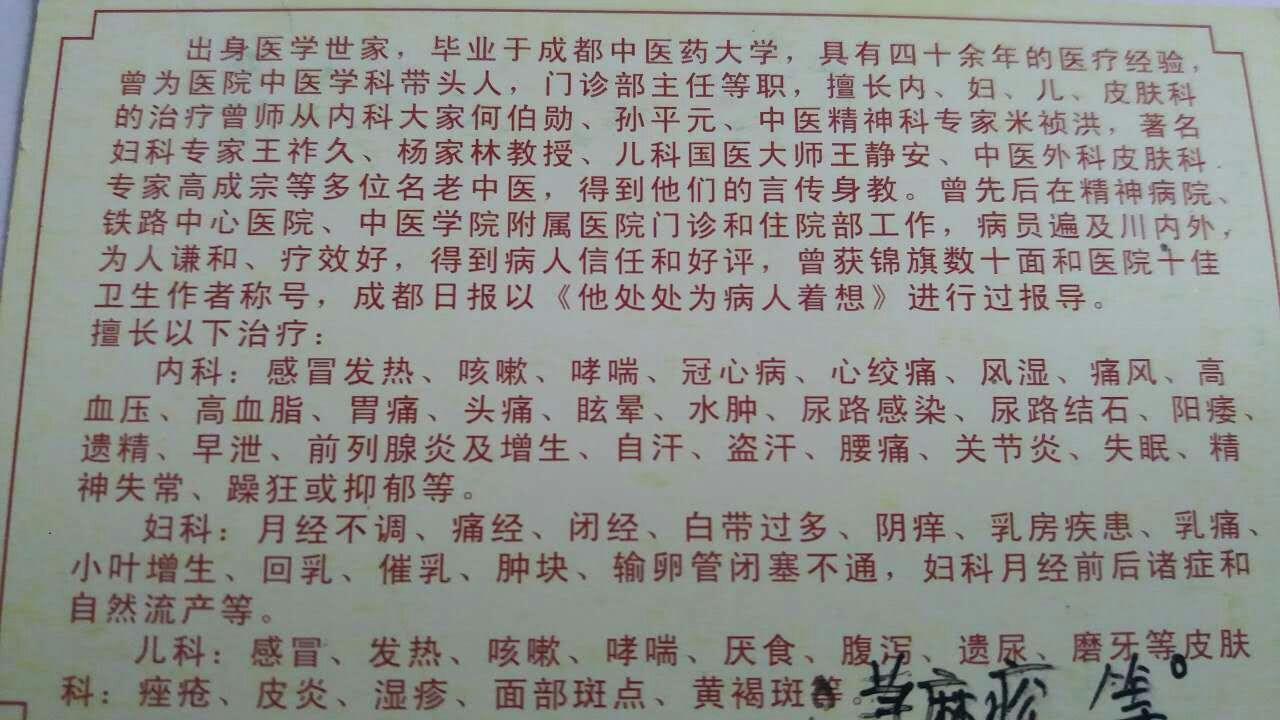 出身医学世家，毕业于成都中医药大学，具有四十余年的医疗经验，
曾为医院中医学科带头人，门诊部主任等职，擅长内、妇、儿、皮肤科
的治疗曾师从内科大家何伯勋、孙平元、中医精神科专家米祯洪，著名
妇科专家王祚久、杨家林教授、儿科国医大师王静安、中医外科皮肤科
专家高成宗等多位名老中医，得到他们的言传身教。曾先后在精神病院、
铁路中心医院、中医学院附属医院门诊和住院部工作，病员遍及川内外，
为人谦和、疗效好，得到病人信任和好评，曾获锦旗数十面和医院十佳
卫生作者称号，成都日报以《他处处为病人着想》进行过报导。
擅长以下治疗：
内科：感冒发热、咳嗽、哮喘、冠心病、心绞痛、风湿、痛风、高
血压、高血脂、胃痛、头痛、眩晕、水肿、尿路感染、尿路结石、阳痿、
遗精、早泄、前列腺炎及增生、自汗、盗汗、腰痛、关节炎、失眠、精
神失常、躁狂或抑郁等。
妇科：月经不调、痛经、闭经、白带过多、阴痒、乳房疾患、乳痛、
小叶增生、回乳、催乳、肿块、输卵管闭塞不通，妇科月经前后诸症和
自然流产等。
儿科：感冒、发热、咳嗽、哮喘、厌食、腹泻、遗尿、磨牙等皮肤
科：痤疮、皮炎、湿疹、面部斑点、黄褐斑等。荨麻疹 等。